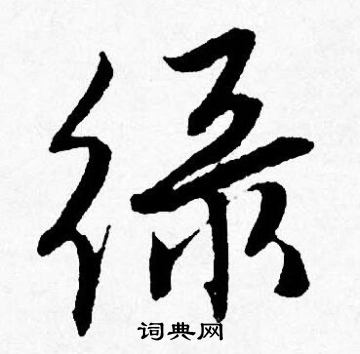 绿
词典网